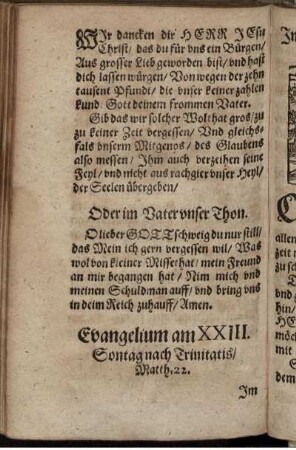 WIr dancken dir HERR JEsu
Christ/ das du für vns ein Bürgen/
Aus grosser Lieb geworden bist/ vnd hast
dich lassen würgen/ Von wegen der zehn
tausent Pfundt/ die vnser keiner zahlen
kund Gott deinem frommen Vater.
Gib das wir solcher Wolthat gros/ zu
zu keiner Zeit vergessen/ Vnd gleichs-
fals vnserm Mitgenos/ des Glaubens
also messen/ Ihm auch verzeihen seine
Feyl/ vnd nicht aus rachgier vnser Heyl/
der Seelen übergeben/
Oder im Vater vnser Thon.
O lieber GOTT schweig du nur still/
das Mein ich gern vergessen wil/ Was
wol von kleiner Missethat/ mein Freund
an mir begangen hat/ Nim mich vnd
meinen Schuldman auff/ vnd bring vns
in dein Reich zuhauff/ Amen.
Evangelium am XXIII.
Sontag nach Trinitatis/
Matth. 22.
Im